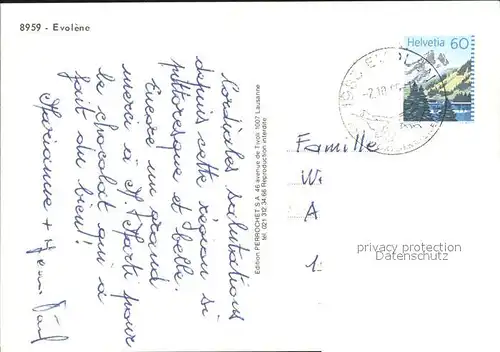 8959 - Evolène
Helvetia 60
Cordiales salutations
depuis cette région si
pittoresque et belle.
Encore un grand
merci à A. Marti pour
le chocolat qui a
fait du bien!
Marianne +
Edition PERROCHET S.A. 46 avenue de Tivoli 1007 Lausanne
Tél. 021 312 34 66 Reproduction interdite
Famille
W
A
1
privacy protection
Datenschutz